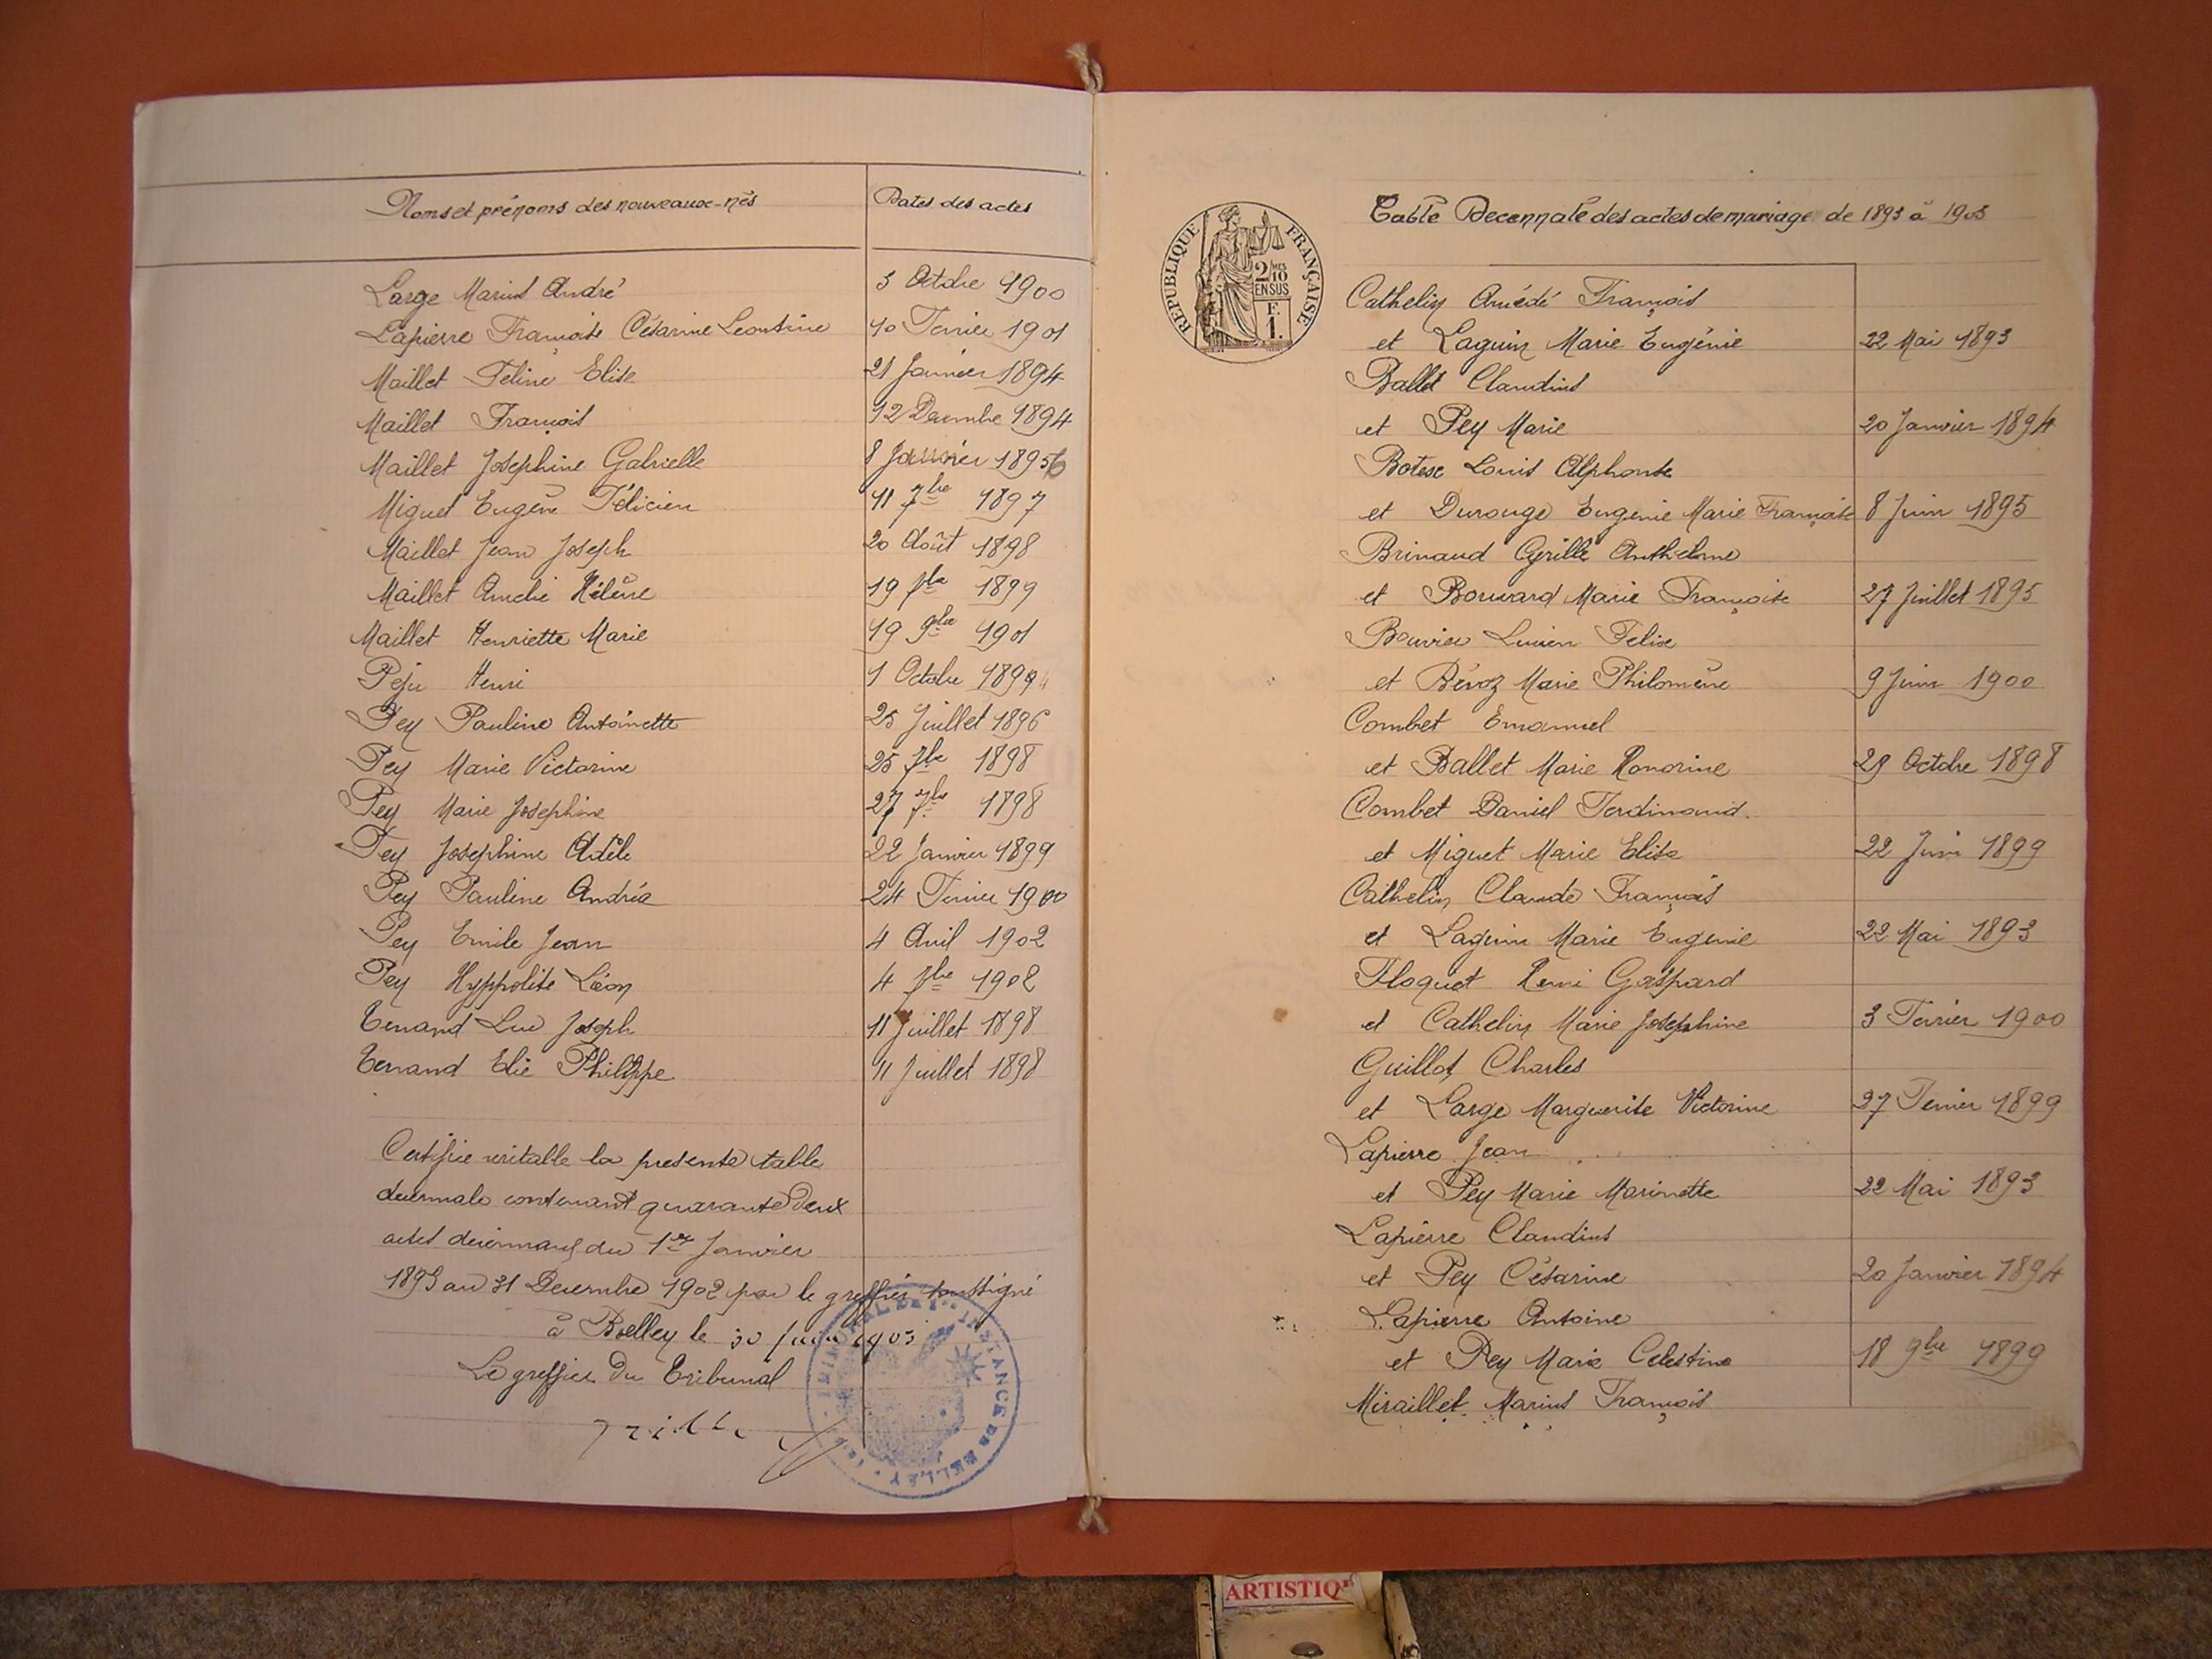 Noms et prénoms des nouveaux-nés
Dates des actes
Large Marius André 3 Octobre 1900
Lapierre Françoise Césarine Leontine 10 Fevrier 1901
Maillet Féline Elise 21 Janvier 1894
Maillet François 12 Decembre 1894
Maillet Josephine Gabrielle 8 Janvier 1896
Miguet Eugène Félicien 11 7bre 1897
Maillet Jean Joseph 20 Août 1898
Maillet Amelie Hélène 19 7bre 1899
Maillet Henriette Marie 19 9bre 1901
Peju Henri 1 Octobre 1894
Pey Pauline Antoinette 25 Juillet 1896
Pey Marie Victorine 25 7bre 1898
Pey Marie Josephine 27 7bre 1898
Pey Josephine Adèle 22 Janvier 1899
Pey Pauline Andréa 24 Fevrier 1900
Pey Emile Jean 4 Avril 1902
Pey Hyppolite Léon 4 7bre 1902
Tenand Luc Joseph 11 Juillet 1898
Tenand Elie Philippe 11 Juillet 1898
Certifie veritable la presente table
decennale contenant quarante deux
actes decennaux du 1er Janvier
1893 au 31 Decembre 1902 par le greffier soussigné
à Belley le 30 Juin 1903
Le greffier du Tribunal
INSTANCE DE BELLEY
RÉPUBLIQUE FRANÇAISE
2/10 MES
EN SUS
F.
1.
Table Decennale des actes de mariage de 1893 à 1903
Cathelin Amédé François
et Laguin Marie Eugénie 22 Mai 1893
Ballet Claudius
et Pey Marie 20 Janvier 1894
Botex Louis Alphonse
et Durouge Eugenie Marie Françoise 8 Juin 1895
Brinaud Cyrille Anthelme
et Bouvard Marie Françoise 27 Juillet 1895
Bouvier Lucien Felix
et Bévoz Marie Philomène 9 Juin 1900
Combet Emanuel
et Ballet Marie Honorine 29 Octobre 1898
Combet Daniel Ferdinand.
et Miguet Marie Elise 22 Juin 1899
Cathelin Claude François
et Laguin Marie Eugenie 22 Mai 1893
Floquet Remi Gaspard
et Cathelin Marie Josephine 3 Février 1900
Guillot Charles
et Large Marguerite Victorine 27 Fevrier 1899
Lapierre Jean
et Pey Marie Marinette 22 Mai 1893
Lapierre Claudius
et Pey Césarine 20 Janvier 1894
Lapierre Antoine
et Pey Marie Celestine 18 9bre 1899
Miraillet Marius François
ARTISTIQ